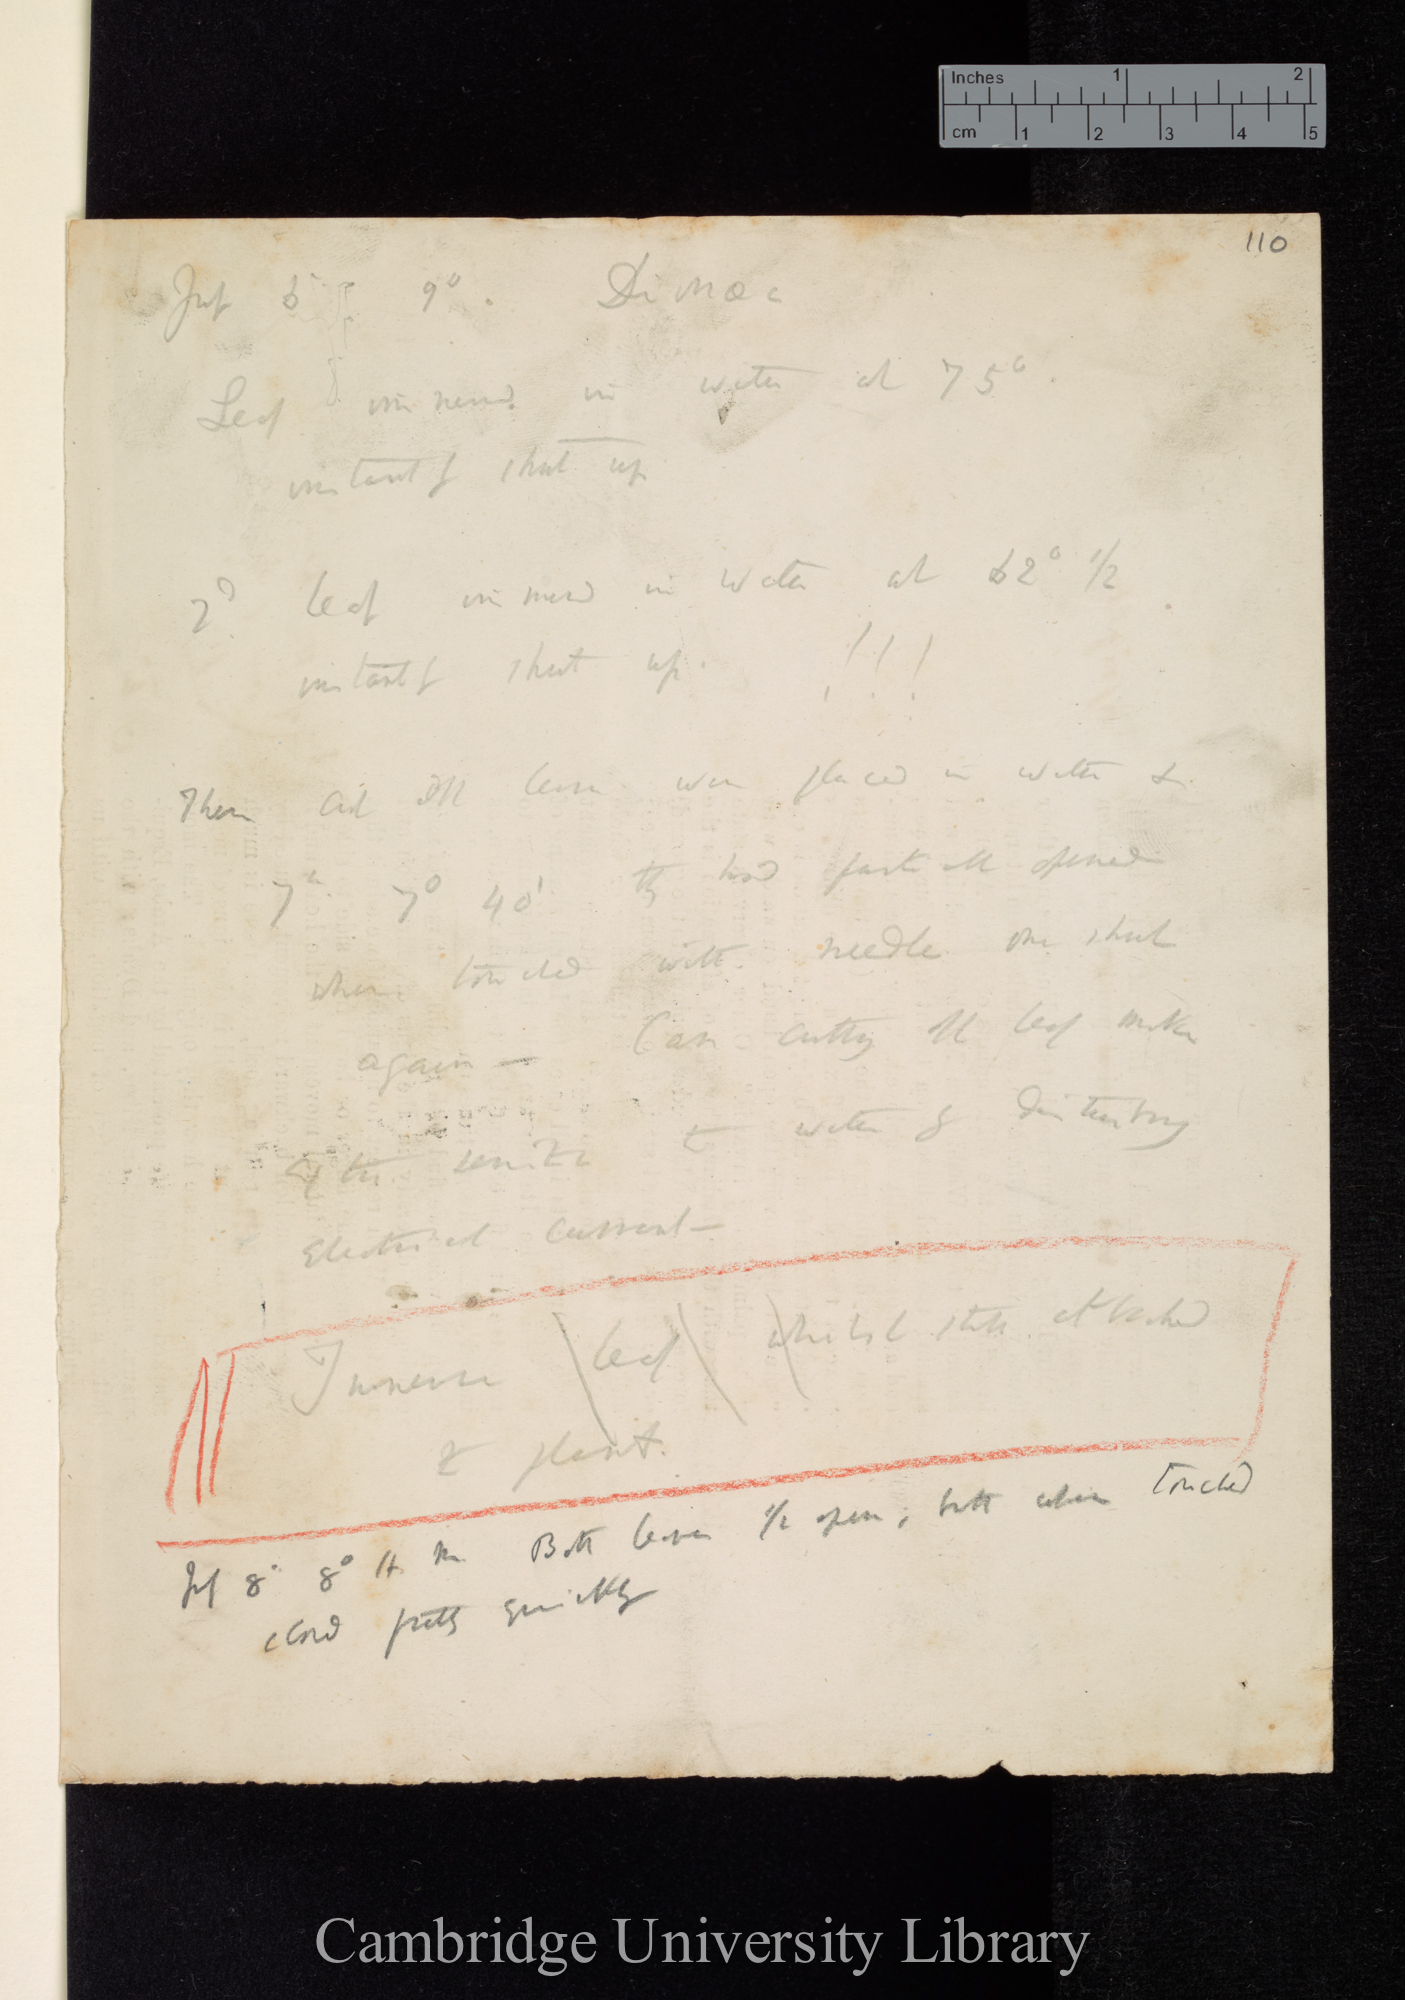 Inches 1 2
cm 1 2 3 4 5
110
July 6 9°. Dionœa
Leaf immersed in water at 75°.
instantly shut up
2d leaf immersed in water at 62° 1/2.
instantly shut up. !!!
These cut off leaves were placed in water &
7th 7° 40' they had partially opened
when touched with needle one shut
again — Can cutting off leaf make
sensitive to water by disturbing
electrical current —
Immerse leaf whilst still attached
to plant.
July 8 8° A. M. Both leaves 1/2 open; both when touched
closed pretty quickly
Cambridge University Library